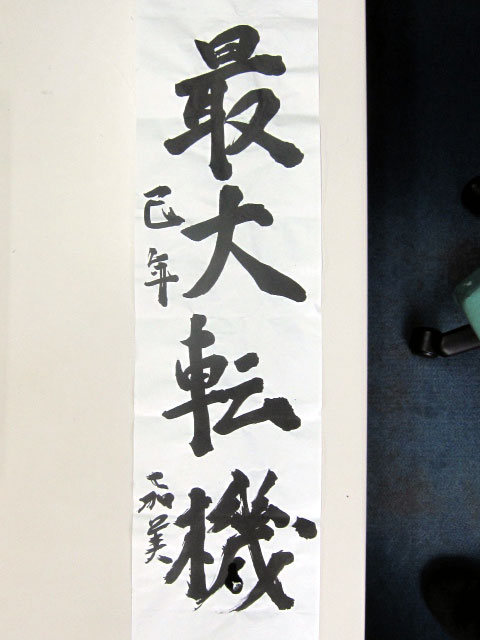 最大転機
巳年
嘉美